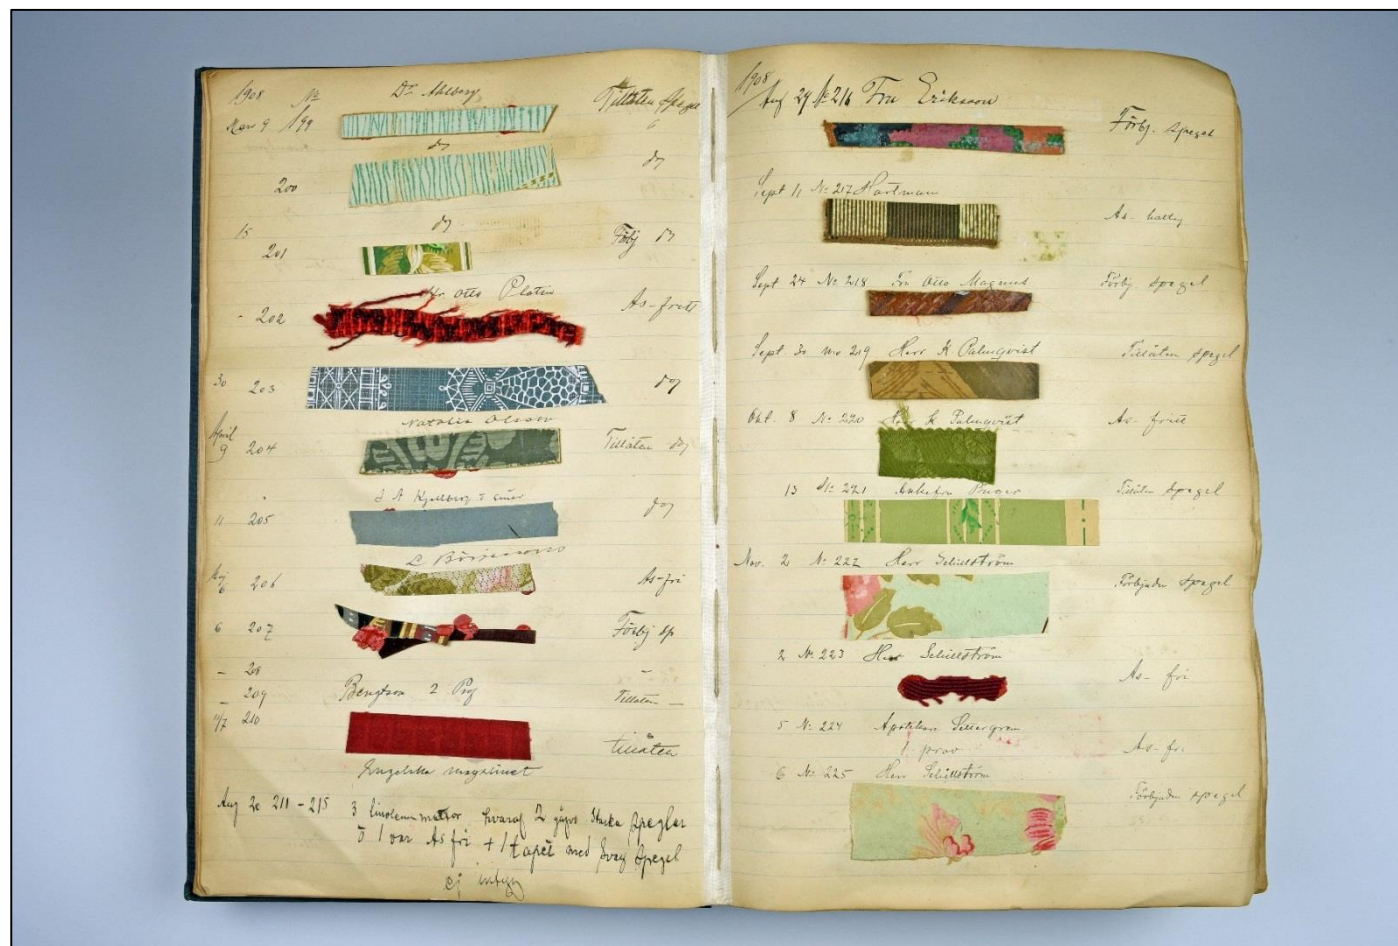 1908 No Dr Ahlberg Tillåten Spegel
9 199
200 do
15 do
201 Förbj do
Hr. Otto Platin
- 202 As-fritt
30 203 do
Natalia Olsson
April
9 204 Tillåten do
J A Kjellberg
11 205 do
L Börjesson
6 206 As-fri
6 207 Förbj sp
- 208 -
- 209 Bengtson 2 Prof Tillåten -
11/7 210 tillåten
Engelska magasinet
Aug 20 211 - 215 3 linoleummattor hvaraf 2 gåfvo starka speglar
o 1 var As fri + 1 tapet med svag spegel
ej
1908
Aug 29 No 216 Fru Eriksson Förbj. spegel
Sept 11 No 217 Hartman As- haltig
Sept 24 No 218 Fru Otto Magnus Förbj. spegel
Sept. 30 No 219 Herr K Palmqvist Tillåten spegel
Okt. 8 No 220 K Palmqvist As- fritt
13 No 221 Tillåten spegel
Nov. 2 No 222 Herr Schillström Förbjuden spegel
2 No 223 Herr Schillström As- fri
5 No 224 Apotekare As- fr.
1 prov
6 No 225 Herr Schillström Förbjuden spegel